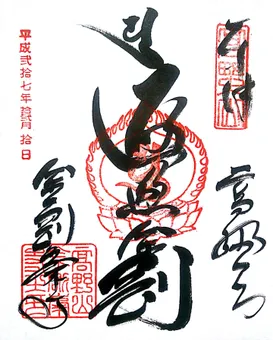 奉拝
高野山
遍照金剛
金剛峯寺
平成弐拾七年
拾日
高野山